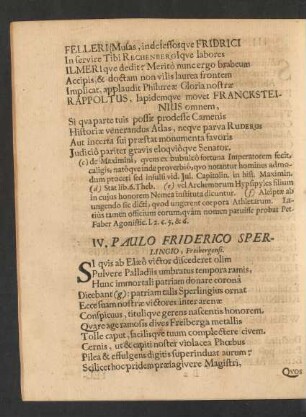 FELLERI Musas, indefessosque FRIDRICI
In servire Tibi RECHENBERGIque labores
ILMERIque dedit? Merito nunc ergo brabeum
Accipis, & doctam non vilis laurea frontem
Implicat, applaudit Philureæ Gloria nostræ
RAPPOLTUS, lapidemque movet FRANCKSTEI-
NIUS omnem,
Si qva parte tuis possit prodesse Camenis
Historiæ venerandus Atlas, neqve parva RUDERIS
Aut incerta sui præstat monumenta favoris
Judiciô pariter gravis eloqviôque Senator.
(c) de Maximini, qvem ex bubulco fortuna Imperatorem fecit,
caligis natôque inde proverbiô, qvo notantur homines
dum proceri sed insulsi vid. Jul. Capitolin. in hist. Maximin.
(d) Stat lib. 6. Theb. (e) vel Archemorum Hypsipyles filium
in cujus honorem Nemea instituta dicuntur. (f) Aleiptæ ab
ungendo sic dicti, qvod ungerent corpora Athletarum. La-
tius tamen officium eorum, qvam nomen patuisse probat Pet.
Faber Agonistic. l. 2. c. 5. & 6.
IV. PAULO FRIDERICO SPER-
LINGIO, Freibergensi.
SI qvis ab Elæô victor discederet olim
Pulvere Palladiis umbratus tempora ramis,
Hunc immortali patriam donare coronâ
Dicebant (g): patriam talis Sperlingius ornat
Ecce suam nostræ victor es inter arenæ
Conspicuus, tituliqve gerens nascentis honorem.
Qvare age ramosis dives Freiberga metallis
Tolle caput, facilisqve tuum complectere civem.
Cernis, ut & capiti noster violacea Phœbus
Pilea & effulgens digitis superinduat aurum:
Scilicet hoc pridem præsagivere Magistri,
Qvos